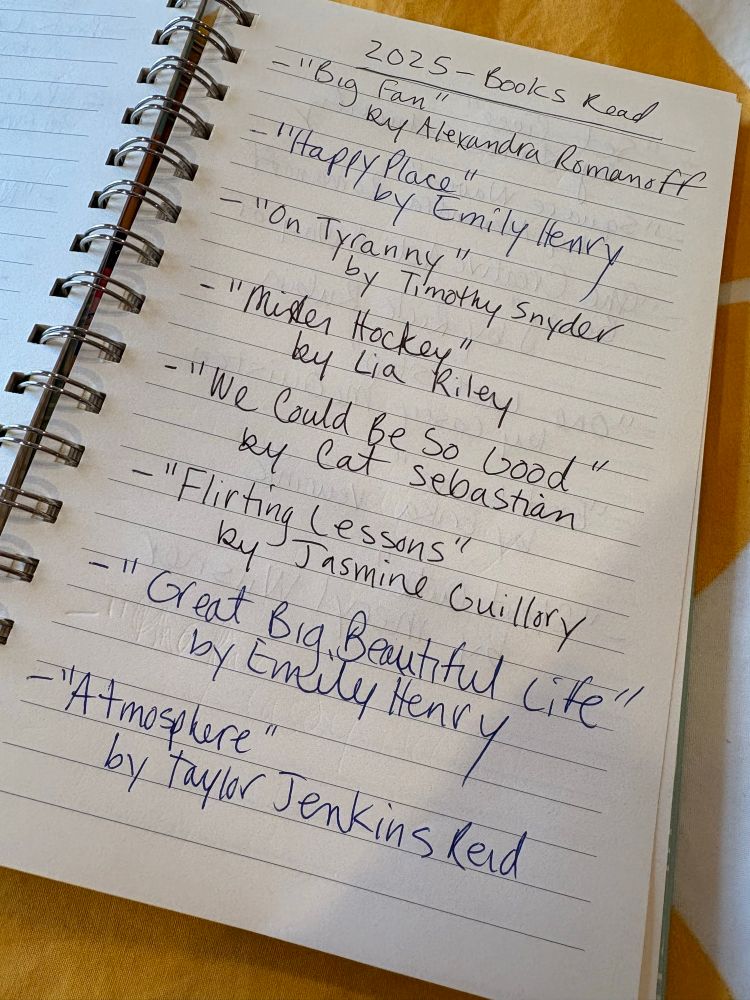 2025 - Books Read
- "Big Fan"
by Alexandra Romanoff
- "Happy Place"
by Emily Henry
- "On Tyranny"
by Timothy Snyder
- "Mister Hockey"
by Lia Riley
- "We Could Be So Good"
by Cat Sebastian
- "Flirting Lessons"
by Jasmine Guillory
- "Great Big Beautiful Life"
by Emily Henry
- "Atmosphere"
by Taylor Jenkins Reid